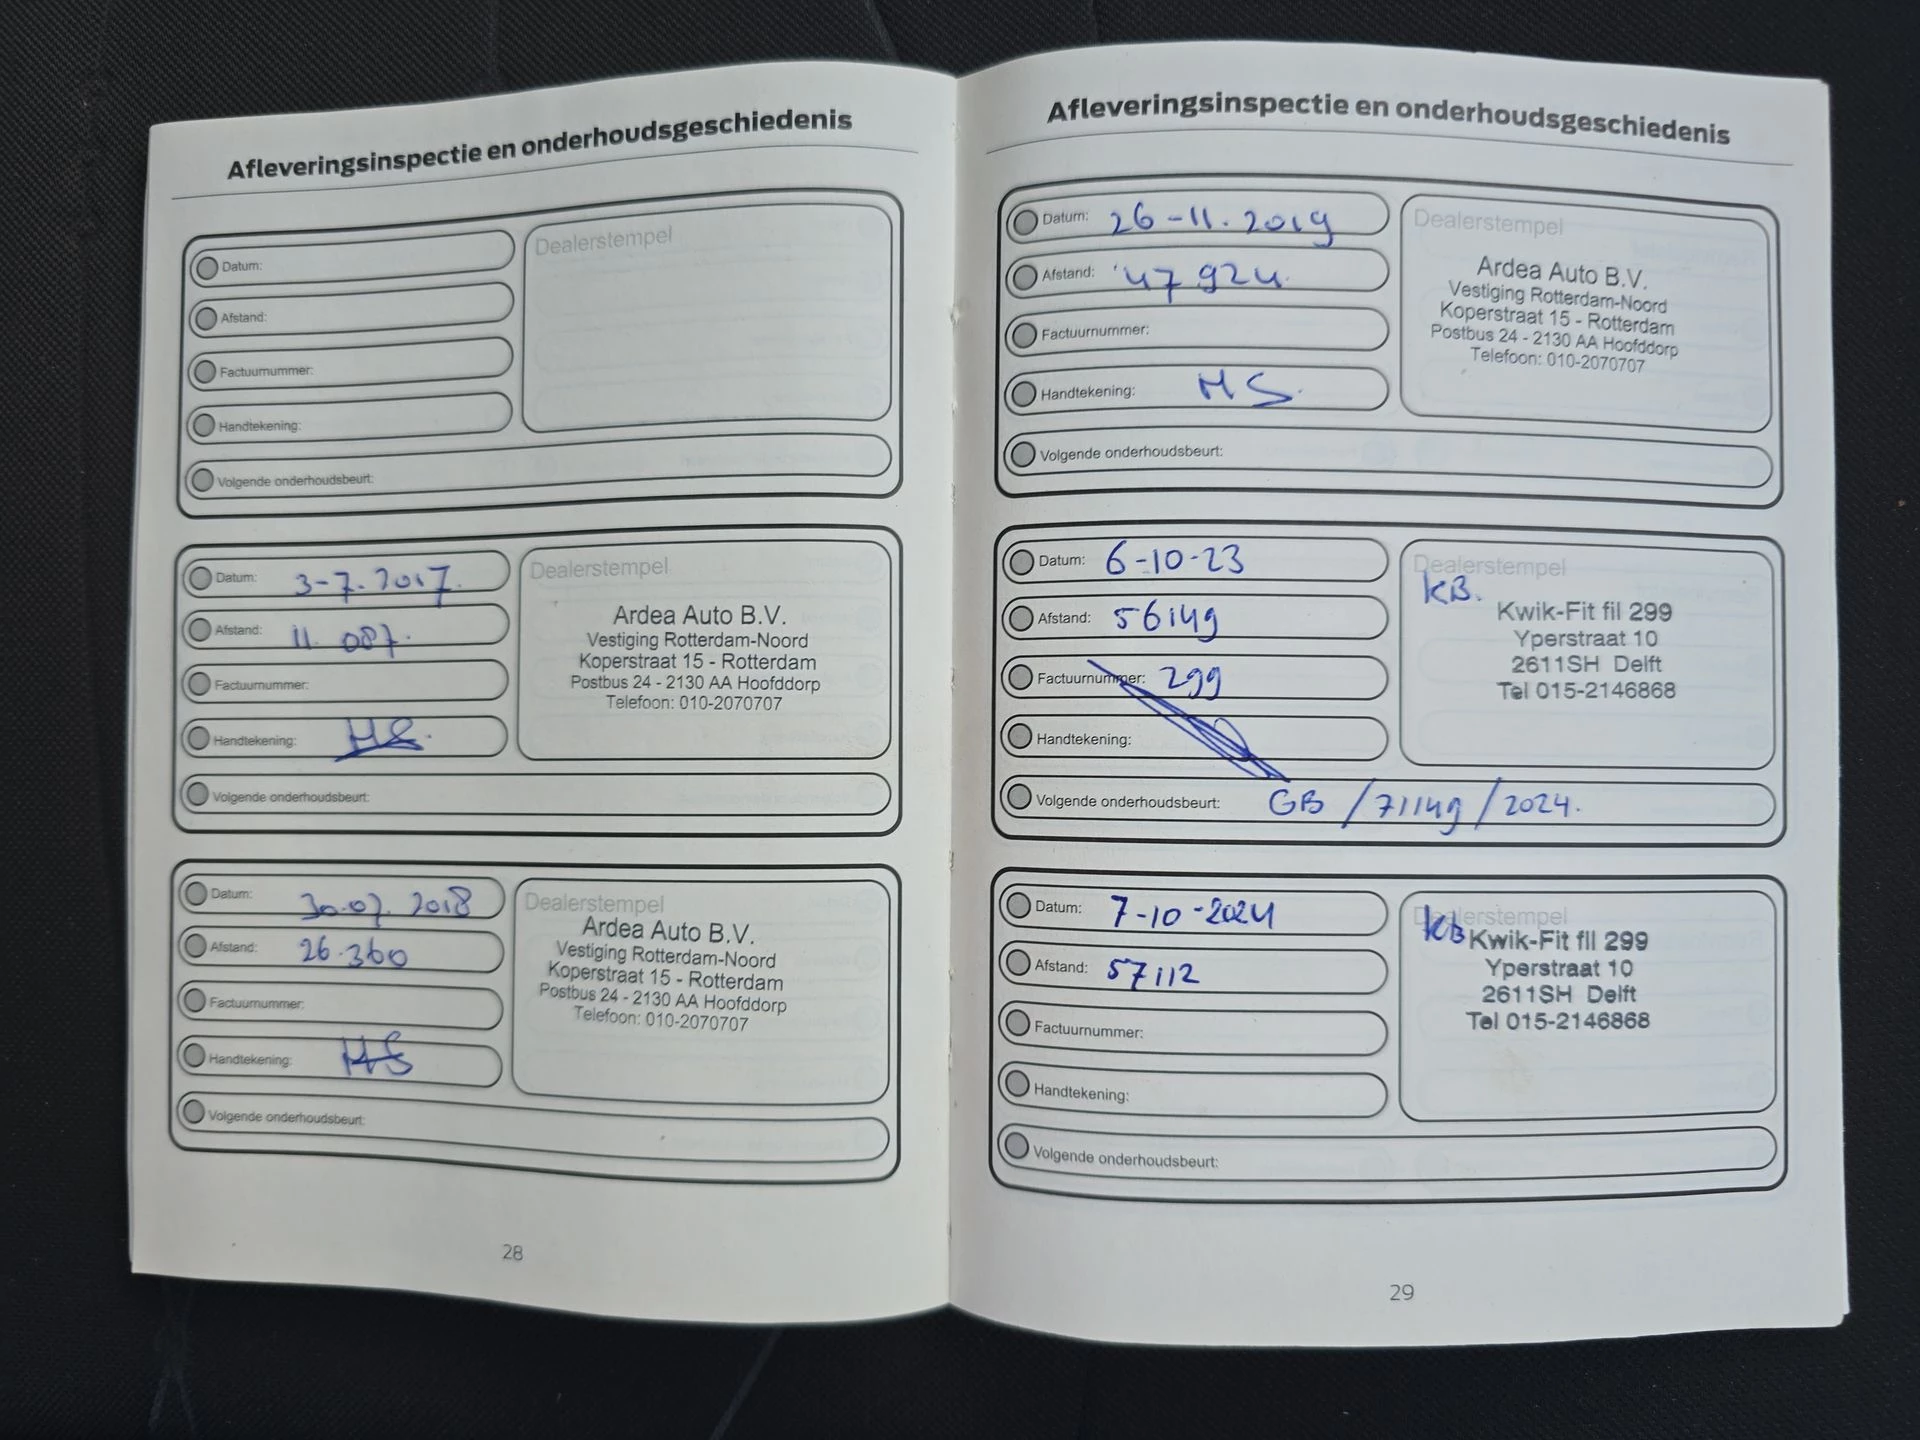 Afleveringsinspectie en onderhoudsgeschiedenis
Datum:
Afstand:
Factuurnummer:
Handtekening:
Volgende onderhoudsbeurt:
Dealerstempel
Datum: 3-7.2017.
Afstand: 11.087.
Factuurnummer:
Handtekening: HS.
Volgende onderhoudsbeurt:
Dealerstempel
Ardea Auto B.V.
Vestiging Rotterdam-Noord
Koperstraat 15 - Rotterdam
Postbus 24 - 2130 AA Hoofddorp
Telefoon: 010-2070707
Datum: 30.07.2018
Afstand: 26.360
Factuurnummer:
Handtekening: HS
Volgende onderhoudsbeurt:
Dealerstempel
Ardea Auto B.V.
Vestiging Rotterdam-Noord
Koperstraat 15 - Rotterdam
Postbus 24 - 2130 AA Hoofddorp
Telefoon: 010-2070707
28
Afleveringsinspectie en onderhoudsgeschiedenis
Datum: 26-11.2019
Afstand: 47924.
Factuurnummer:
Handtekening: HS.
Volgende onderhoudsbeurt:
Dealerstempel
Ardea Auto B.V.
Vestiging Rotterdam-Noord
Koperstraat 15 - Rotterdam
Postbus 24 - 2130 AA Hoofddorp
Telefoon: 010-2070707
Datum: 6-10-23
Afstand: 56149
Factuurnummer: 299
Handtekening:
Volgende onderhoudsbeurt: GB / 71149 / 2024.
Dealerstempel
KB.
Kwik-Fit fil 299
Yperstraat 10
2611SH Delft
Tel 015-2146868
Datum: 7-10-2024
Afstand: 57112
Factuurnummer:
Handtekening:
Volgende onderhoudsbeurt:
Dealerstempel
KB Kwik-Fit fil 299
Yperstraat 10
2611SH Delft
Tel 015-2146868
29